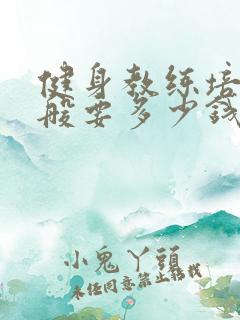 健身教练培
般要多少钱
小鬼丫頭
未经同意禁止转载